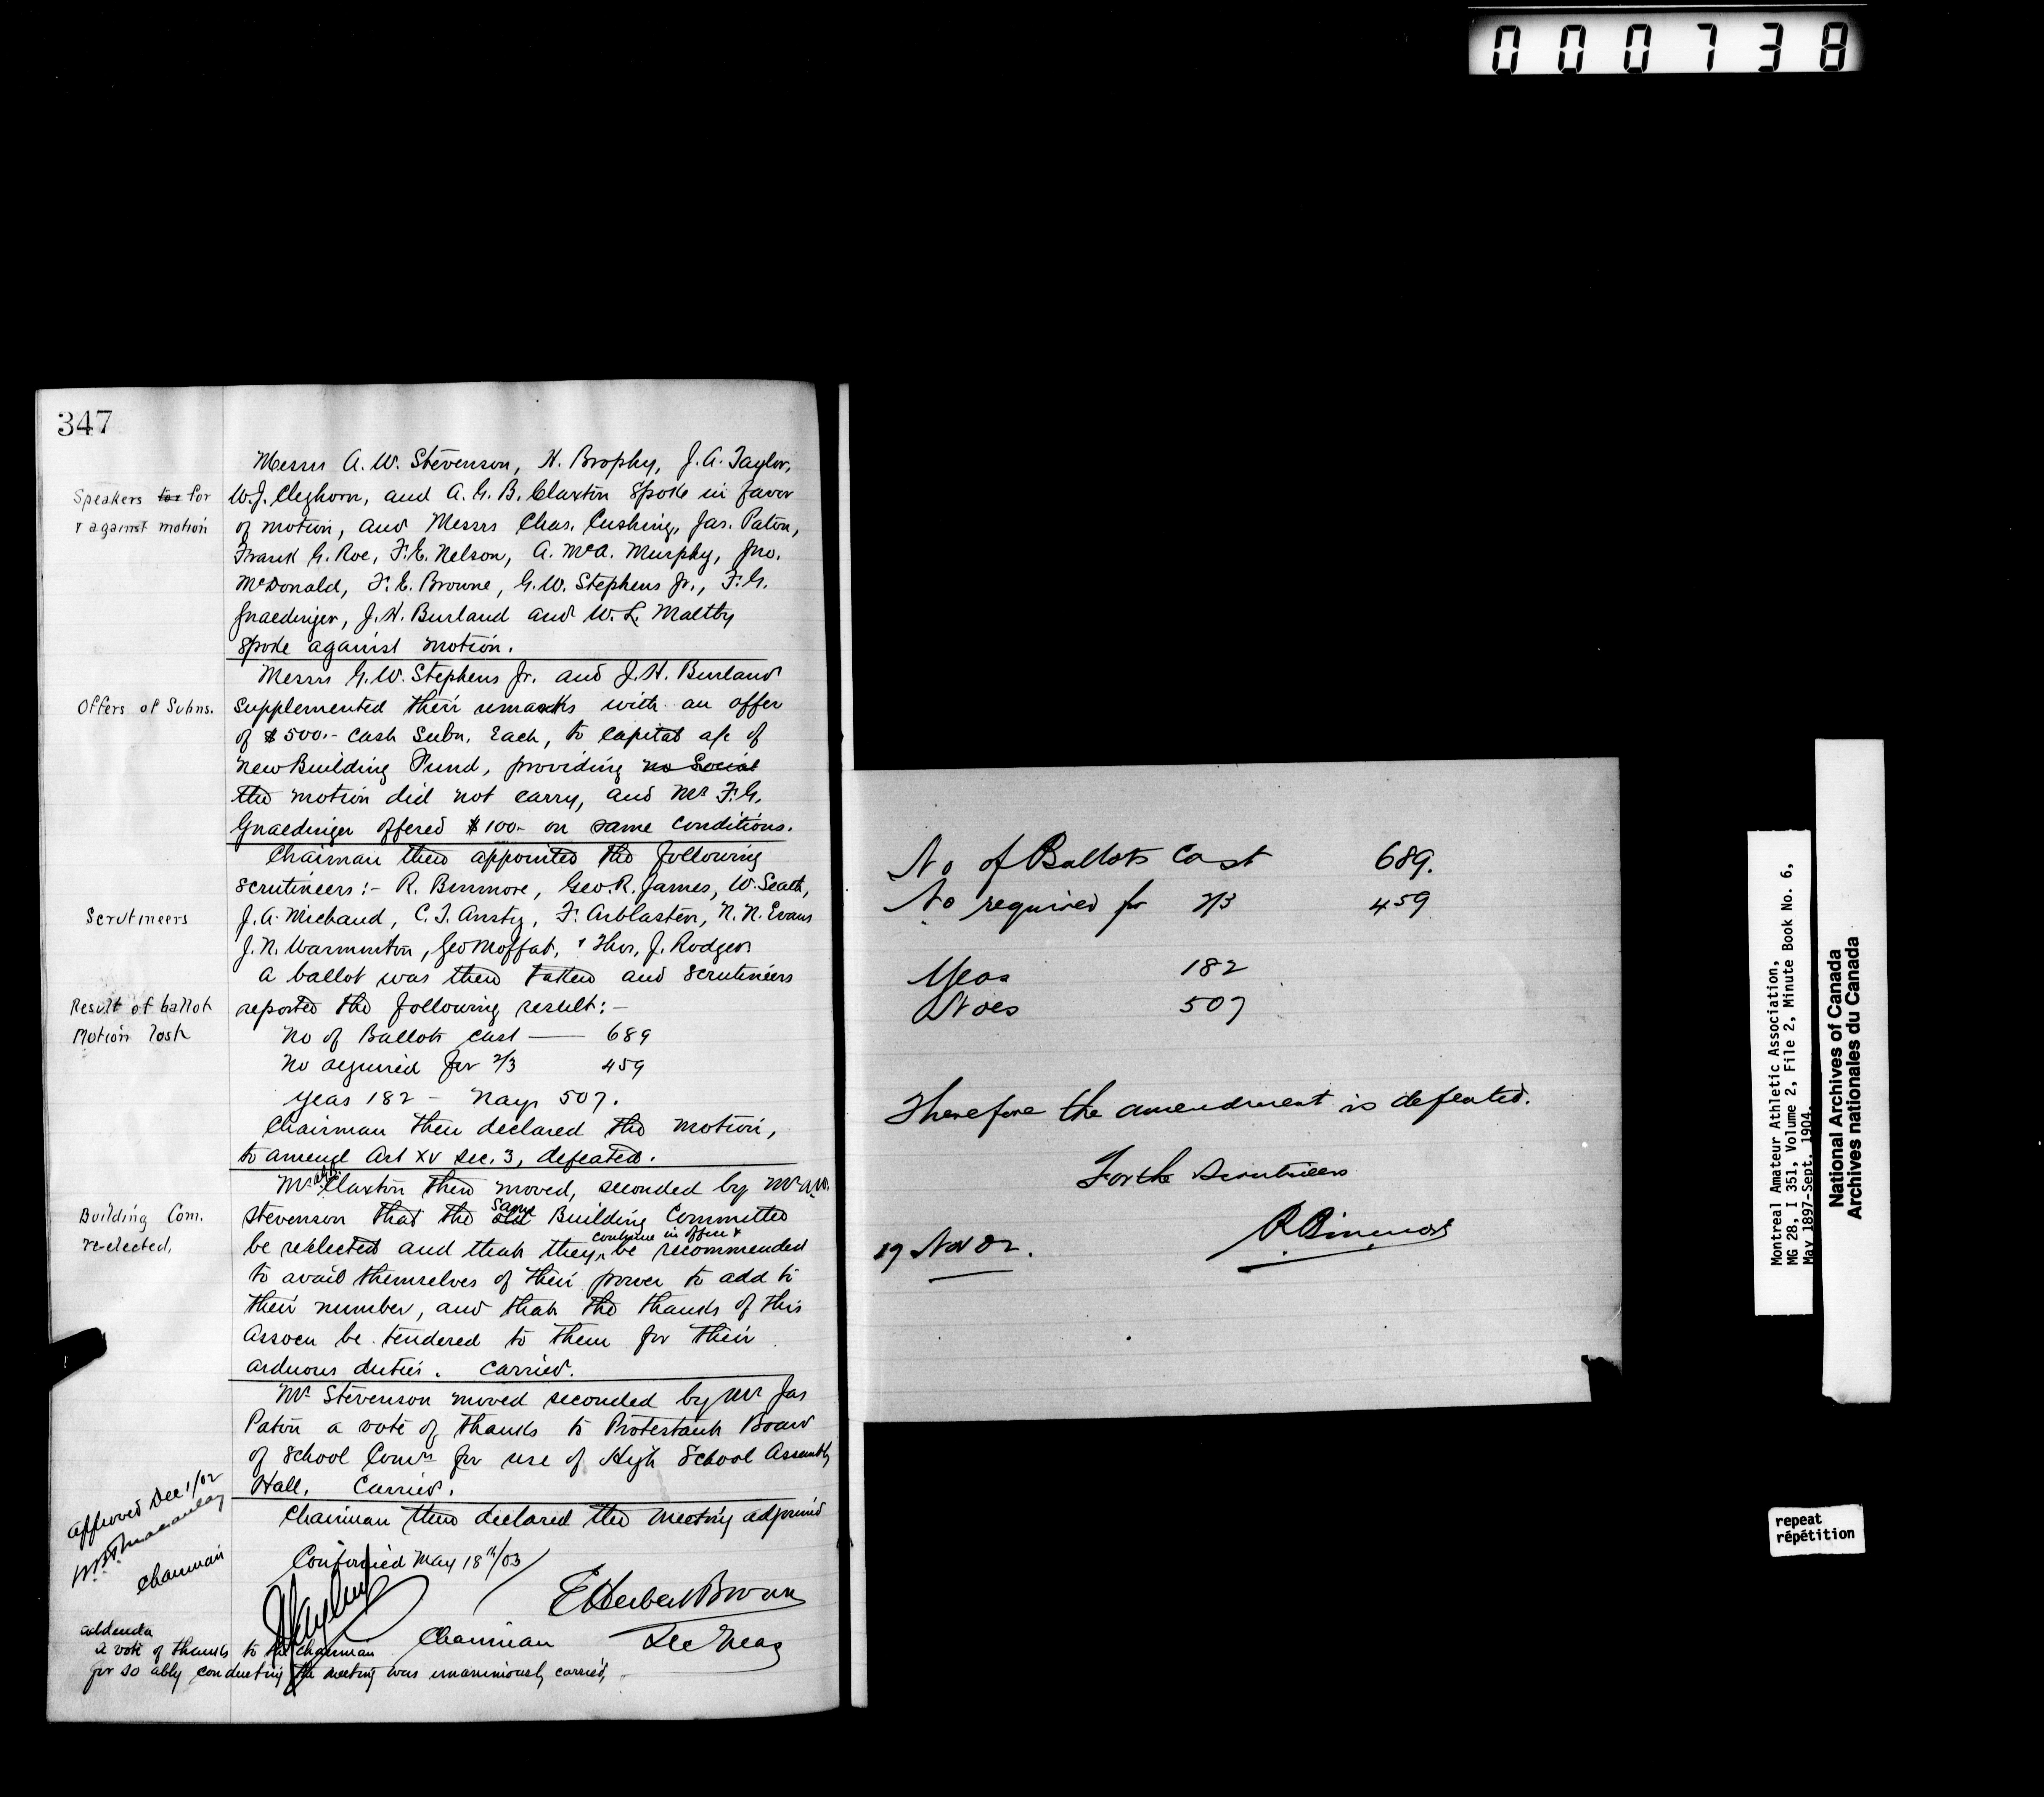 000738
347
Messrs A. W. Stevenson, H. Brophy, J. A. Taylor,
Speakers for
W. J. Cleghorn, and A. G. B. Claxton spoke in favor
& against motion
of motion, and Messrs Chas. Cushing, Jas. Paton,
Frank G. Roe, F. E. Nelson, A. McA. Murphy, Jno.
McDonald, F. E. Browne, G. W. Stephens Jr., F. G.
Gnaedinger, J. H. Burland and W. L. Maltby
spoke against motion.
Messrs G. W. Stephens Jr. and J. H. Burland
Offers of Subns.
supplemented their remarks with an offer
of $500.- cash Subn. Each, to capital a/c of
New Building Fund, providing no Social
the motion did not carry, and Mr F. G.
Gnaedinger offered $100- on same conditions.
Chairman then appointed the following
scrutineers:- R. Binmore, Geo. R. James, W. Seath,
Scrutineers
J. A. Michaud, C. T. Ansty, F. Arblaster, N. N. Evans
J. N. Warminton, Geo Moffat, & Thos. J. Rodger
A ballot was then taken and scrutineers
Result of ballot
reported the following result:-
Motion lost
No of Ballots cast — 689
No required for 2/3 459
Yeas 182 - Nays 507.
Chairman then declared the motion,
to amend Art XV sec. 3, defeated.
Mr AGB Claxton then moved, seconded by Mr A.W.
Building Com.
Stevenson that the same Building Committee
re-elected,
be reelected and that they continue in office & be recommended
to avail themselves of their power to add to
their number, and that the thanks of this
Assocn be tendered to them for their
arduous duties. Carried.
Mr Stevenson moved seconded by Mr Jas
Paton a vote of thanks to Protestant Board
of School Comrs for use of High School Assembly
Hall. Carried.
Chairman then declared the meeting adjourned
approved Dec 1/02
Chairman
Confirmed May 18th/03
E Herbert Brown
Chairman
Sec Treas
addenda
a vote of thanks to the chairman
for so ably conducting the meeting was unanimously carried,
No of Ballots Cast 689.
No required for 2/3 459
Yeas 182
Noes 507
Therefore the amendment is defeated.
For the Scrutineers
R Binmore
19 Nov 02.
Montreal Amateur Athletic Association,
MG 28, I 351, Volume 2, File 2, Minute Book No. 6,
May 1897-Sept. 1904.
National Archives of Canada
Archives nationales du Canada
repeat
répétition